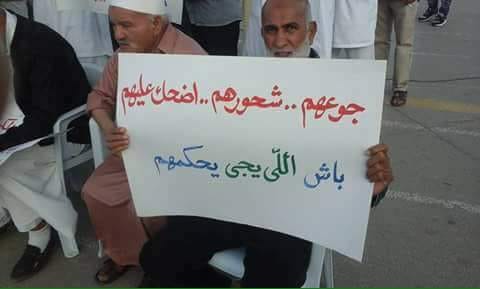 جوعهم .. شحورهم .. اضحك عليهم
باش اللّي يجي يحكمهم